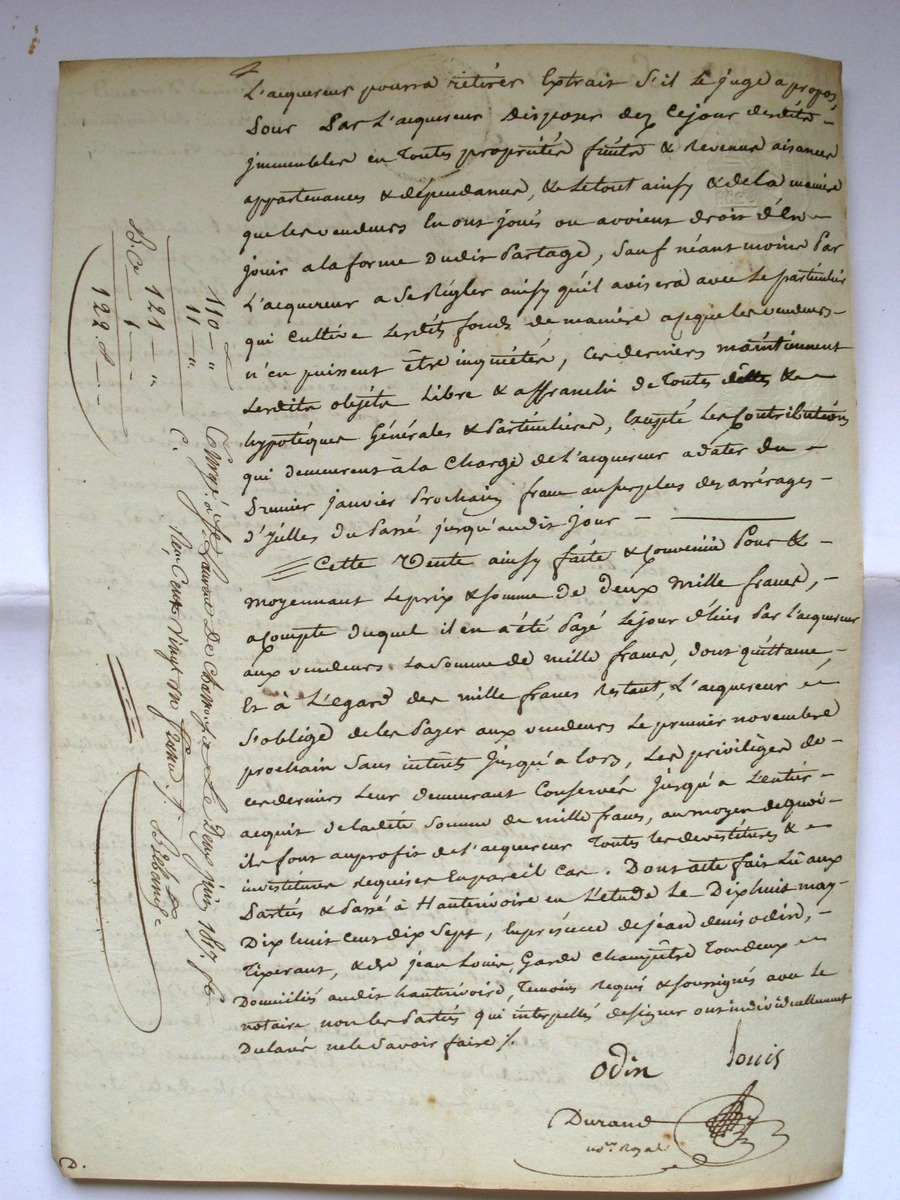 L'acquereur pourra retirer Extrait S'il le juge a propos,
Pour Par L'acquereur Disposer dez Cejour desdits
jmmeubles en Toutes propriétés fruits & Revenus aisances
appartenances & dépendances, & Letout ainsy & dela maniere
que les vendeurs En ont jouis ou avoient droit d'En
jouir a la forme Dudit Partage, Sauf néant moins Par
L'acquereur a Se Régler ainsy qu'il avisera avec Le particulier
qui Cultive Lesdits fonds de maniere a ceque les vendeurs
n'en puissent Être inquiétés, Ces derniers maintiennent
Lesdits objets Libre & affranchi de Toutes dettes &
hypotéques Générales & Particulieres, Excepté Les Contributions
qui demeurent à la Charge de L'acquereur a dater du
Premier janvier Prochain franc au surplus des arrérages
d'jcelles du Passé jusqu'audit jour
Cette Vente ainsy faite & Convenüe Pour &
moyennant Le prix & somme de deux mille francs,
a Compte duquel il en a été Payé Cejour d'hui Par L'acquereur
aux vendeurs La Somme de mille francs, dont quittance,
Et à L'égard des mille francs Restant, L'acquereur
S'oblige de les Payer aux vendeurs Le premier novembre
prochain Sans intérêts Jusqu'a lors, Les privilèges de
ces derniers Leur demeurant Conservés Jusqu'a L'entier
acquit de ladite Somme de mille francs, au moyen de quoi
ils font au profit de L'acquereur Toutes les devestitures &
investitures Requises En pareil Cas. Dont acte fait Lû aux
Parties & Passé à Hauterivoire en L'etude Le Dixhuit may
Dix huit Cent dix Sept, En présence de jean denis odin,
Tixerant, & de jean Louis, Garde Champêtre Tous deux
Domiciliés audit hauterivoire, Temoins Requis & soussignés avec Le
notaire non les Parties qui interpellés de signer ont individuellement
Déclaré ne le Savoir faire ./.
odin Louis
Durand
no.re Royal
110 — "
11 — "
C.
121 — "
1
122. 8 —
Enregé. à St. Laurent De Chamousset Le Deux juin 1817. fo.
Reçu Cent vingt un francs
D.